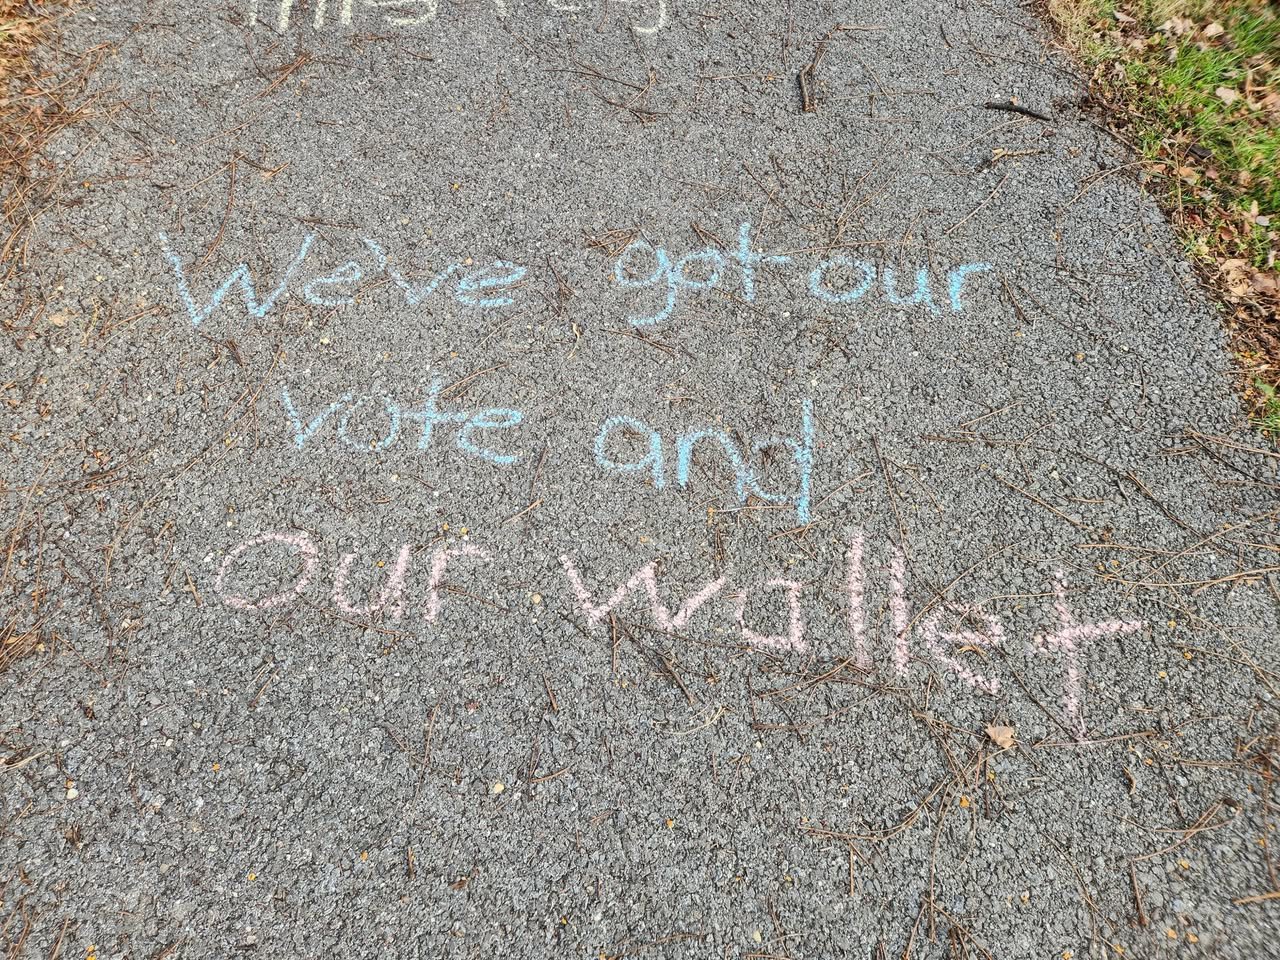 We've got our
vote and
our wallet